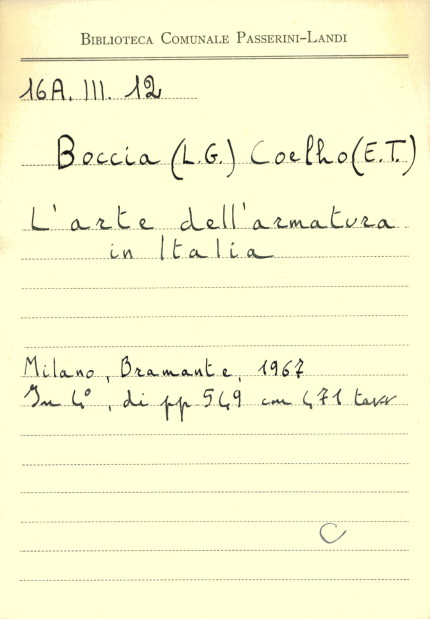 BIBLIOTECA COMUNALE PASSERINI-LANDI
16A. III. 12
Boccia (L.G.) Coelho (E.T.)
L'arte dell'armatura
in Italia
Milano, Bramante, 1967
In 4°, di pp 549 con 471 tavv
C